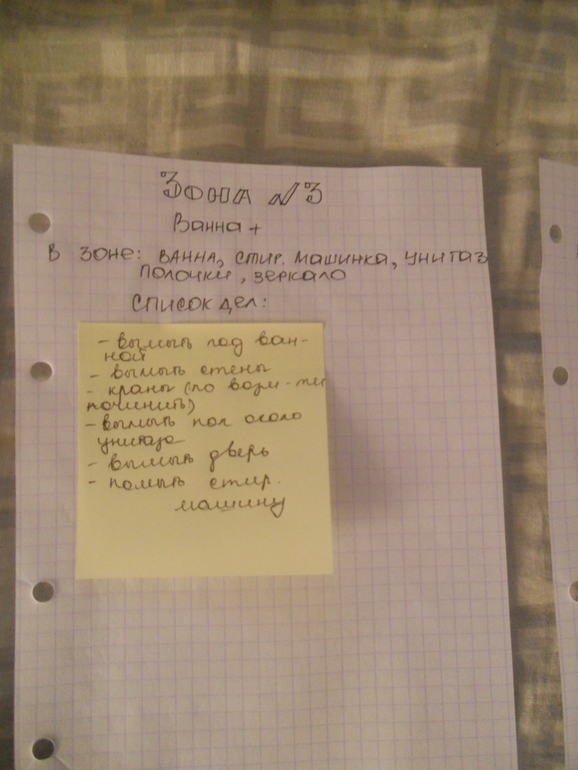 Зона №3
Ванна +
В зоне: ванна, стир. машинка, унитаз
полочки, зеркало
Список дел:
- вымыть под ван-
ной
- вымыть стены
- краны (по возм-ти
починить)
- вымыть пол около
унитаза
- вымыть дверь
- помыть стир.
машину